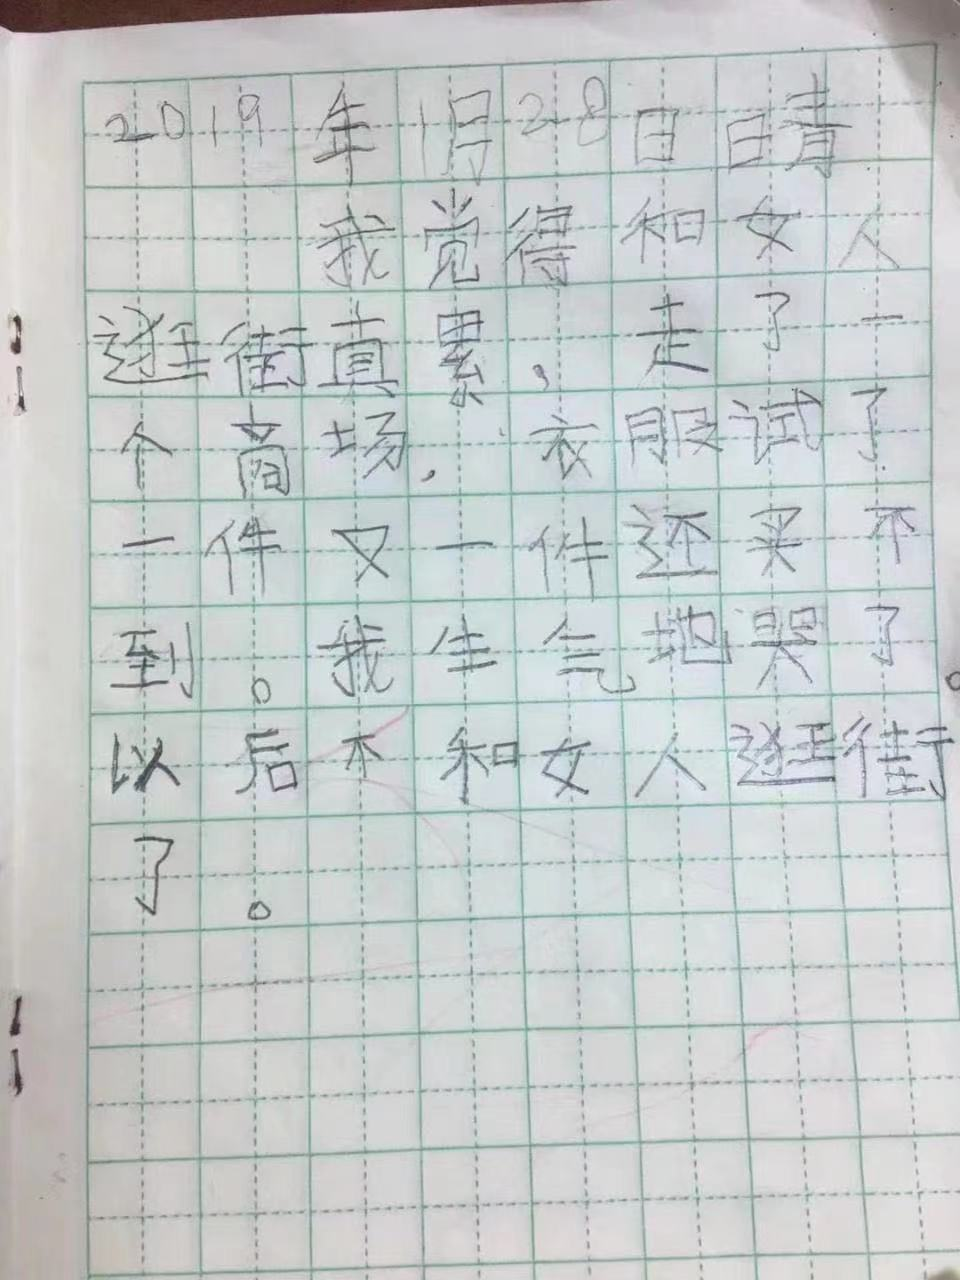 2019年1月28日晴
我觉得和女人
逛街真累,走了一
个商场,衣服试了
一件又一件还买不
到。我生气地哭了。
以后不和女人逛街
了。